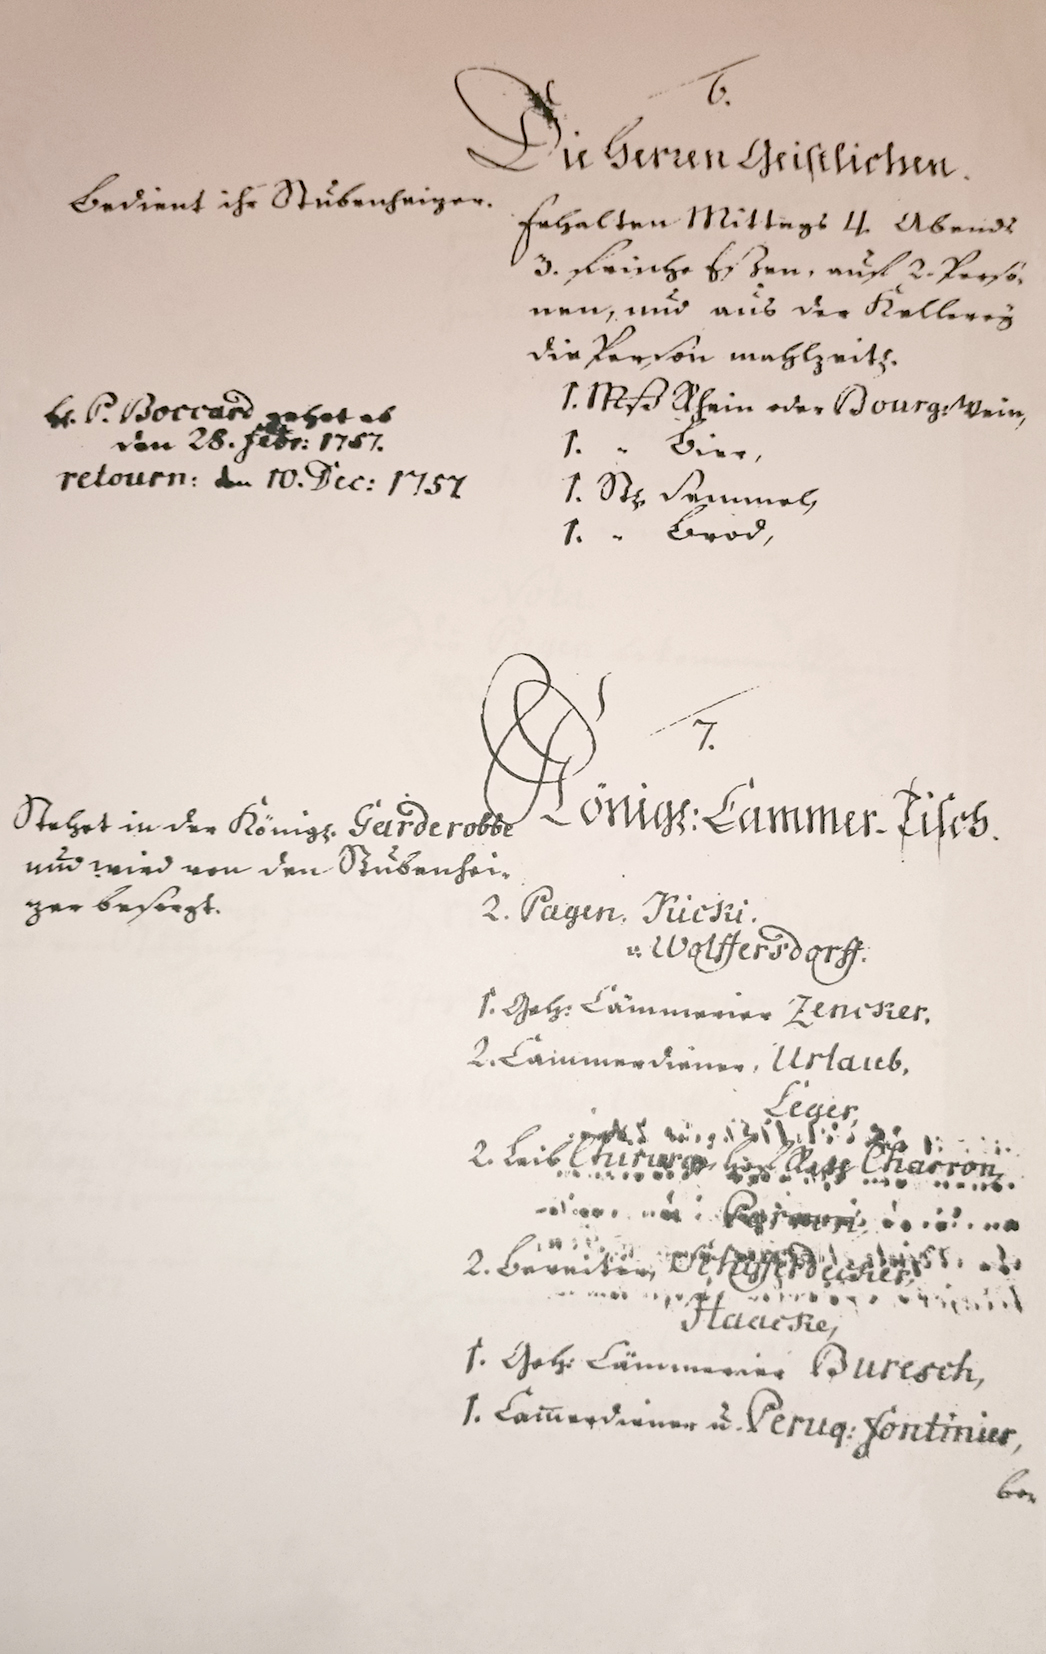 6.
Die Herren Geistlichen.
Bedient ihr Stubenheizer.
Erhalten Mittags 4. Abends
3. frische Essen, auf 2. Perso-
nen, und aus der Kellerey
die Person mahlzeitl.
1. Mß Rhein oder Bourg: Wein,
1. " Bier,
1. St. Semmel,
1. " Brod,
H. P. Boccard gehet ab
den 28. Febr: 1757.
retourn: den 10. Dec: 1757
7.
Königl: Cammer-Tisch.
Stehet in der Königl. Garderobbe
und wird von den Stubenhei-
zer besorgt.
2. Pagen. Kicki.
u. Wolffersdorff.
1. Geh: Cämmerier Zencker,
2. Cammerdiener, Urlaub,
Leger,
2. Leib Chirurg. Charron,
2. Bereiter, Schifferdecker,
Haacke,
1. Geh: Cämmerier Buresch,
1. Cam̅erdiener u. Peruq: Fontinier,